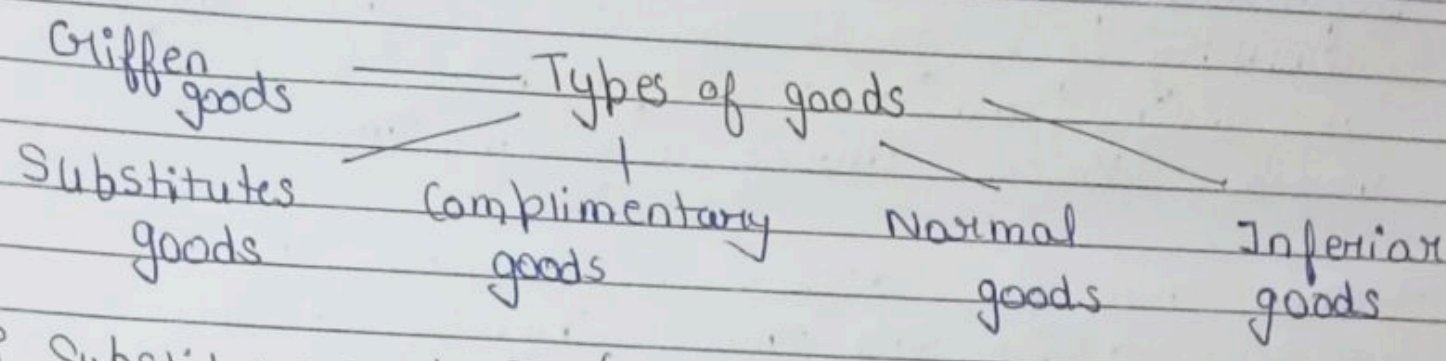 Giffen
goods
Types of goods
Substitutes
goods
Complimentary
goods
Normal
goods
Inferior
goods